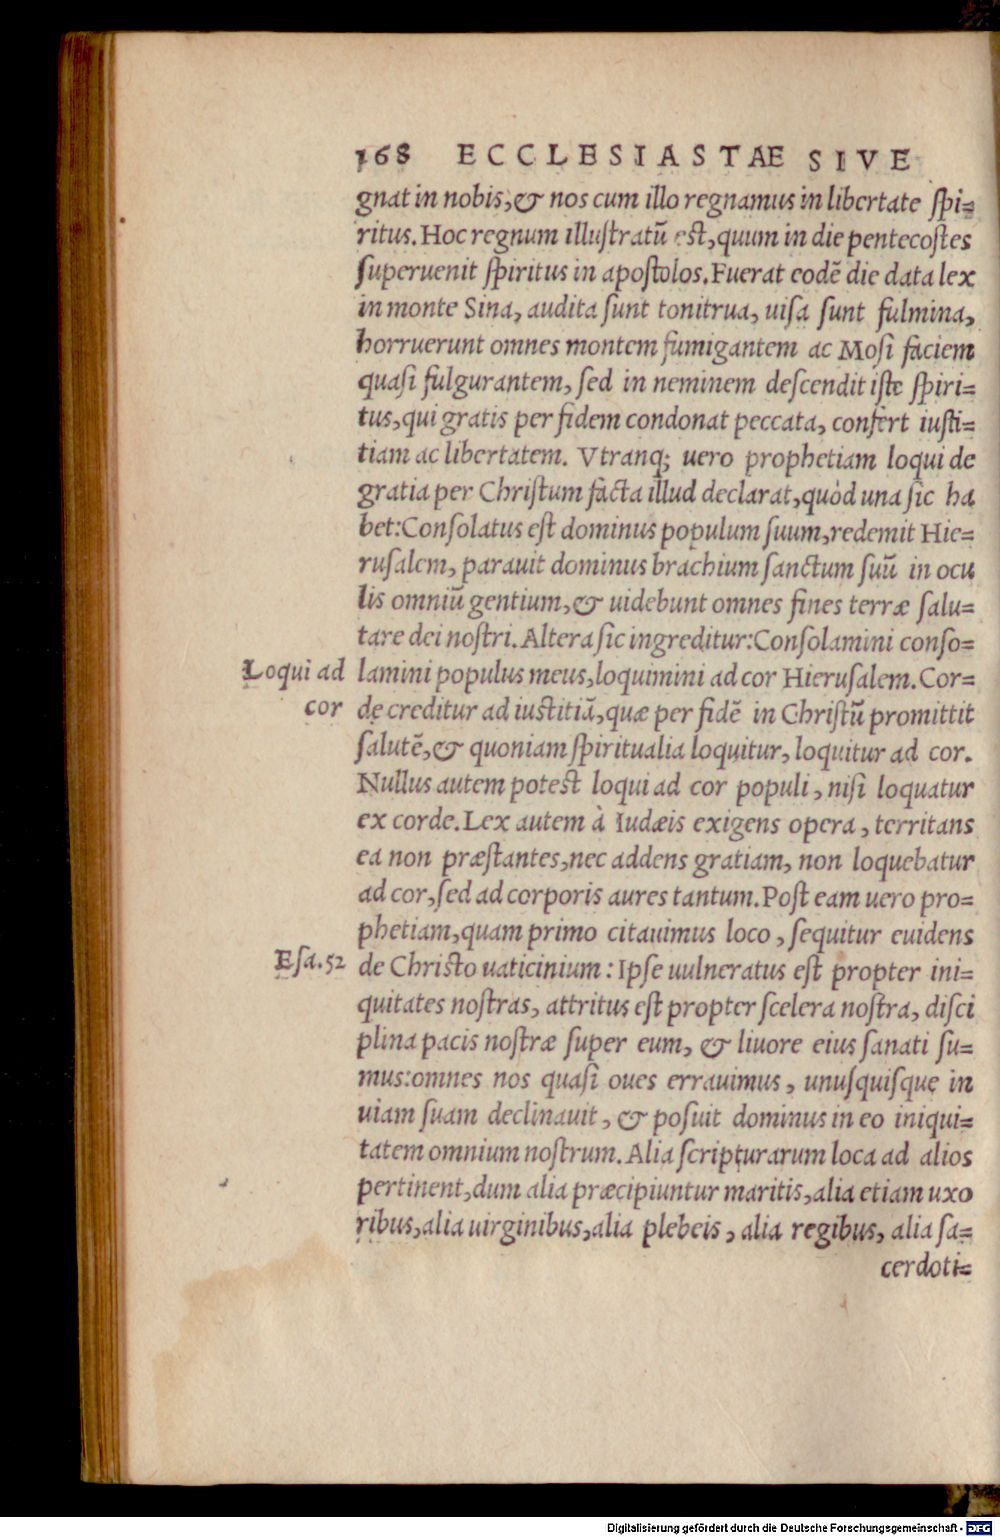 168 ECCLESIASTAE SIVE
gnat in nobis, & nos cum illo regnamus in libertate ſpi=
ritus. Hoc regnum illuſtratū eſt, quum in die pentecoſtes
ſuperuenit ſpiritus in apoſtolos. Fuerat eodē die data lex
in monte Sina, audita ſunt tonitrua, uiſa ſunt fulmina,
horruerunt omnes montem fumigantem ac Moſi faciem
quaſi fulgurantem, ſed in neminem deſcendit iſte ſpiri=
tus, qui gratis per fidem condonat peccata, confert iuſti=
tiam ac libertatem. Vtranq; uero prophetiam loqui de
gratia per Chriſtum facta illud declarat, quòd una ſic ha
bet: Conſolatus eſt dominus populum ſuum, redemit Hie=
ruſalem, parauit dominus brachium ſanctum ſuū in ocu
lis omniū gentium, & uidebunt omnes fines terræ ſalu=
tare dei noſtri. Altera ſic ingreditur: Conſolamini conſo=
Loqui ad cor
lamini populus meus, loquimini ad cor Hieruſalem. Cor=
de creditur ad iuſtitiā, quæ per fidē in Chriſtū promittit
ſalutē, & quoniam ſpiritualia loquitur, loquitur ad cor.
Nullus autem poteſt loqui ad cor populi, niſi loquatur
ex corde. Lex autem à Iudæis exigens opera, territans
ea non præſtantes, nec addens gratiam, non loquebatur
ad cor, ſed ad corporis aures tantum. Poſt eam uero pro=
phetiam, quam primo citauimus loco, ſequitur euidens
Eſa. 52
de Chriſto uaticinium: Ipſe uulneratus eſt propter ini=
quitates noſtras, attritus eſt propter ſcelera noſtra, diſci
plina pacis noſtræ ſuper eum, & liuore eius ſanati ſu=
mus: omnes nos quaſi oues errauimus, unuſquiſque in
uiam ſuam declinauit, & poſuit dominus in eo iniqui=
tatem omnium noſtrum. Alia ſcripturarum loca ad alios
pertinent, dum alia præcipiuntur maritis, alia etiam uxo
ribus, alia uirginibus, alia plebeis, alia regibus, alia ſa=
cerdoti=
Digitalisierung gefördert durch die Deutsche Forschungsgemeinschaft - DFG